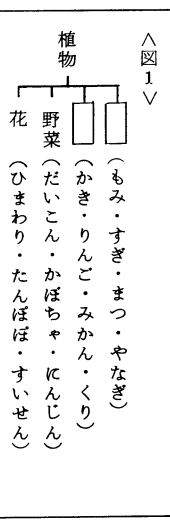 <図1>
植物
(もみ・すぎ・まつ・やなぎ)
(かき・りんご・みかん・くり)
野菜(だいこん・かぼちゃ・にんじん)
花(ひまわり・たんぽぽ・すいせん)